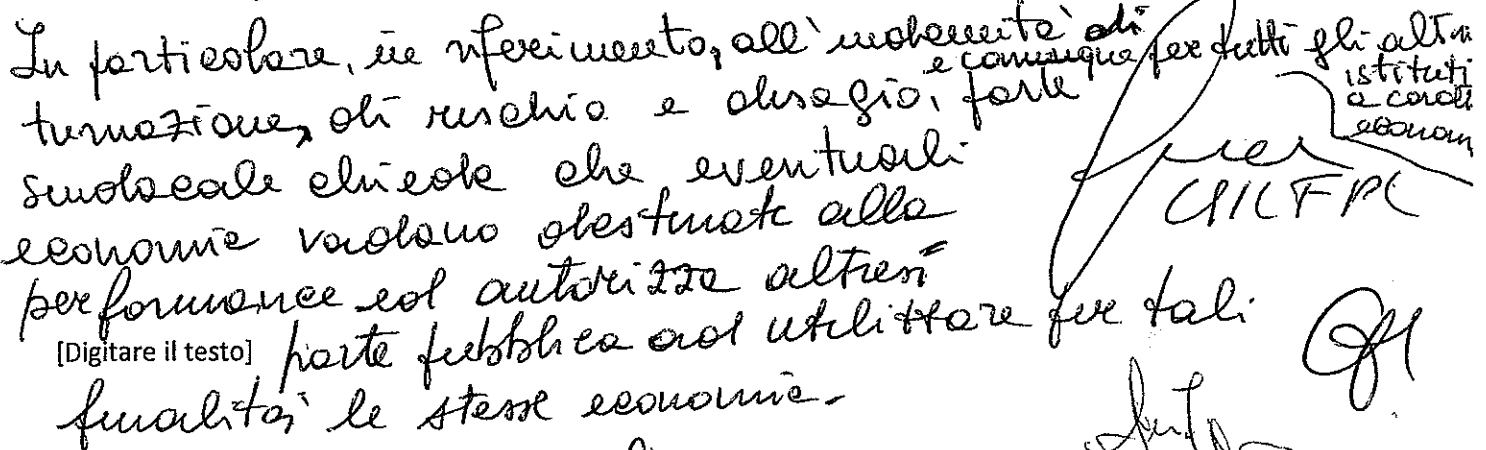 In particolare, in riferimento, all'indennità di
e comunque per tutti gli altri
istituti
economi
turnazione, di rischio e disagio, parte
sindacale chiede che eventuali
economie vadano destinate alla
CISL FP
performance ed autorizza altresì
[Digitare il testo] parte pubblica ad utilizzare per tali
finalità le stesse economie.